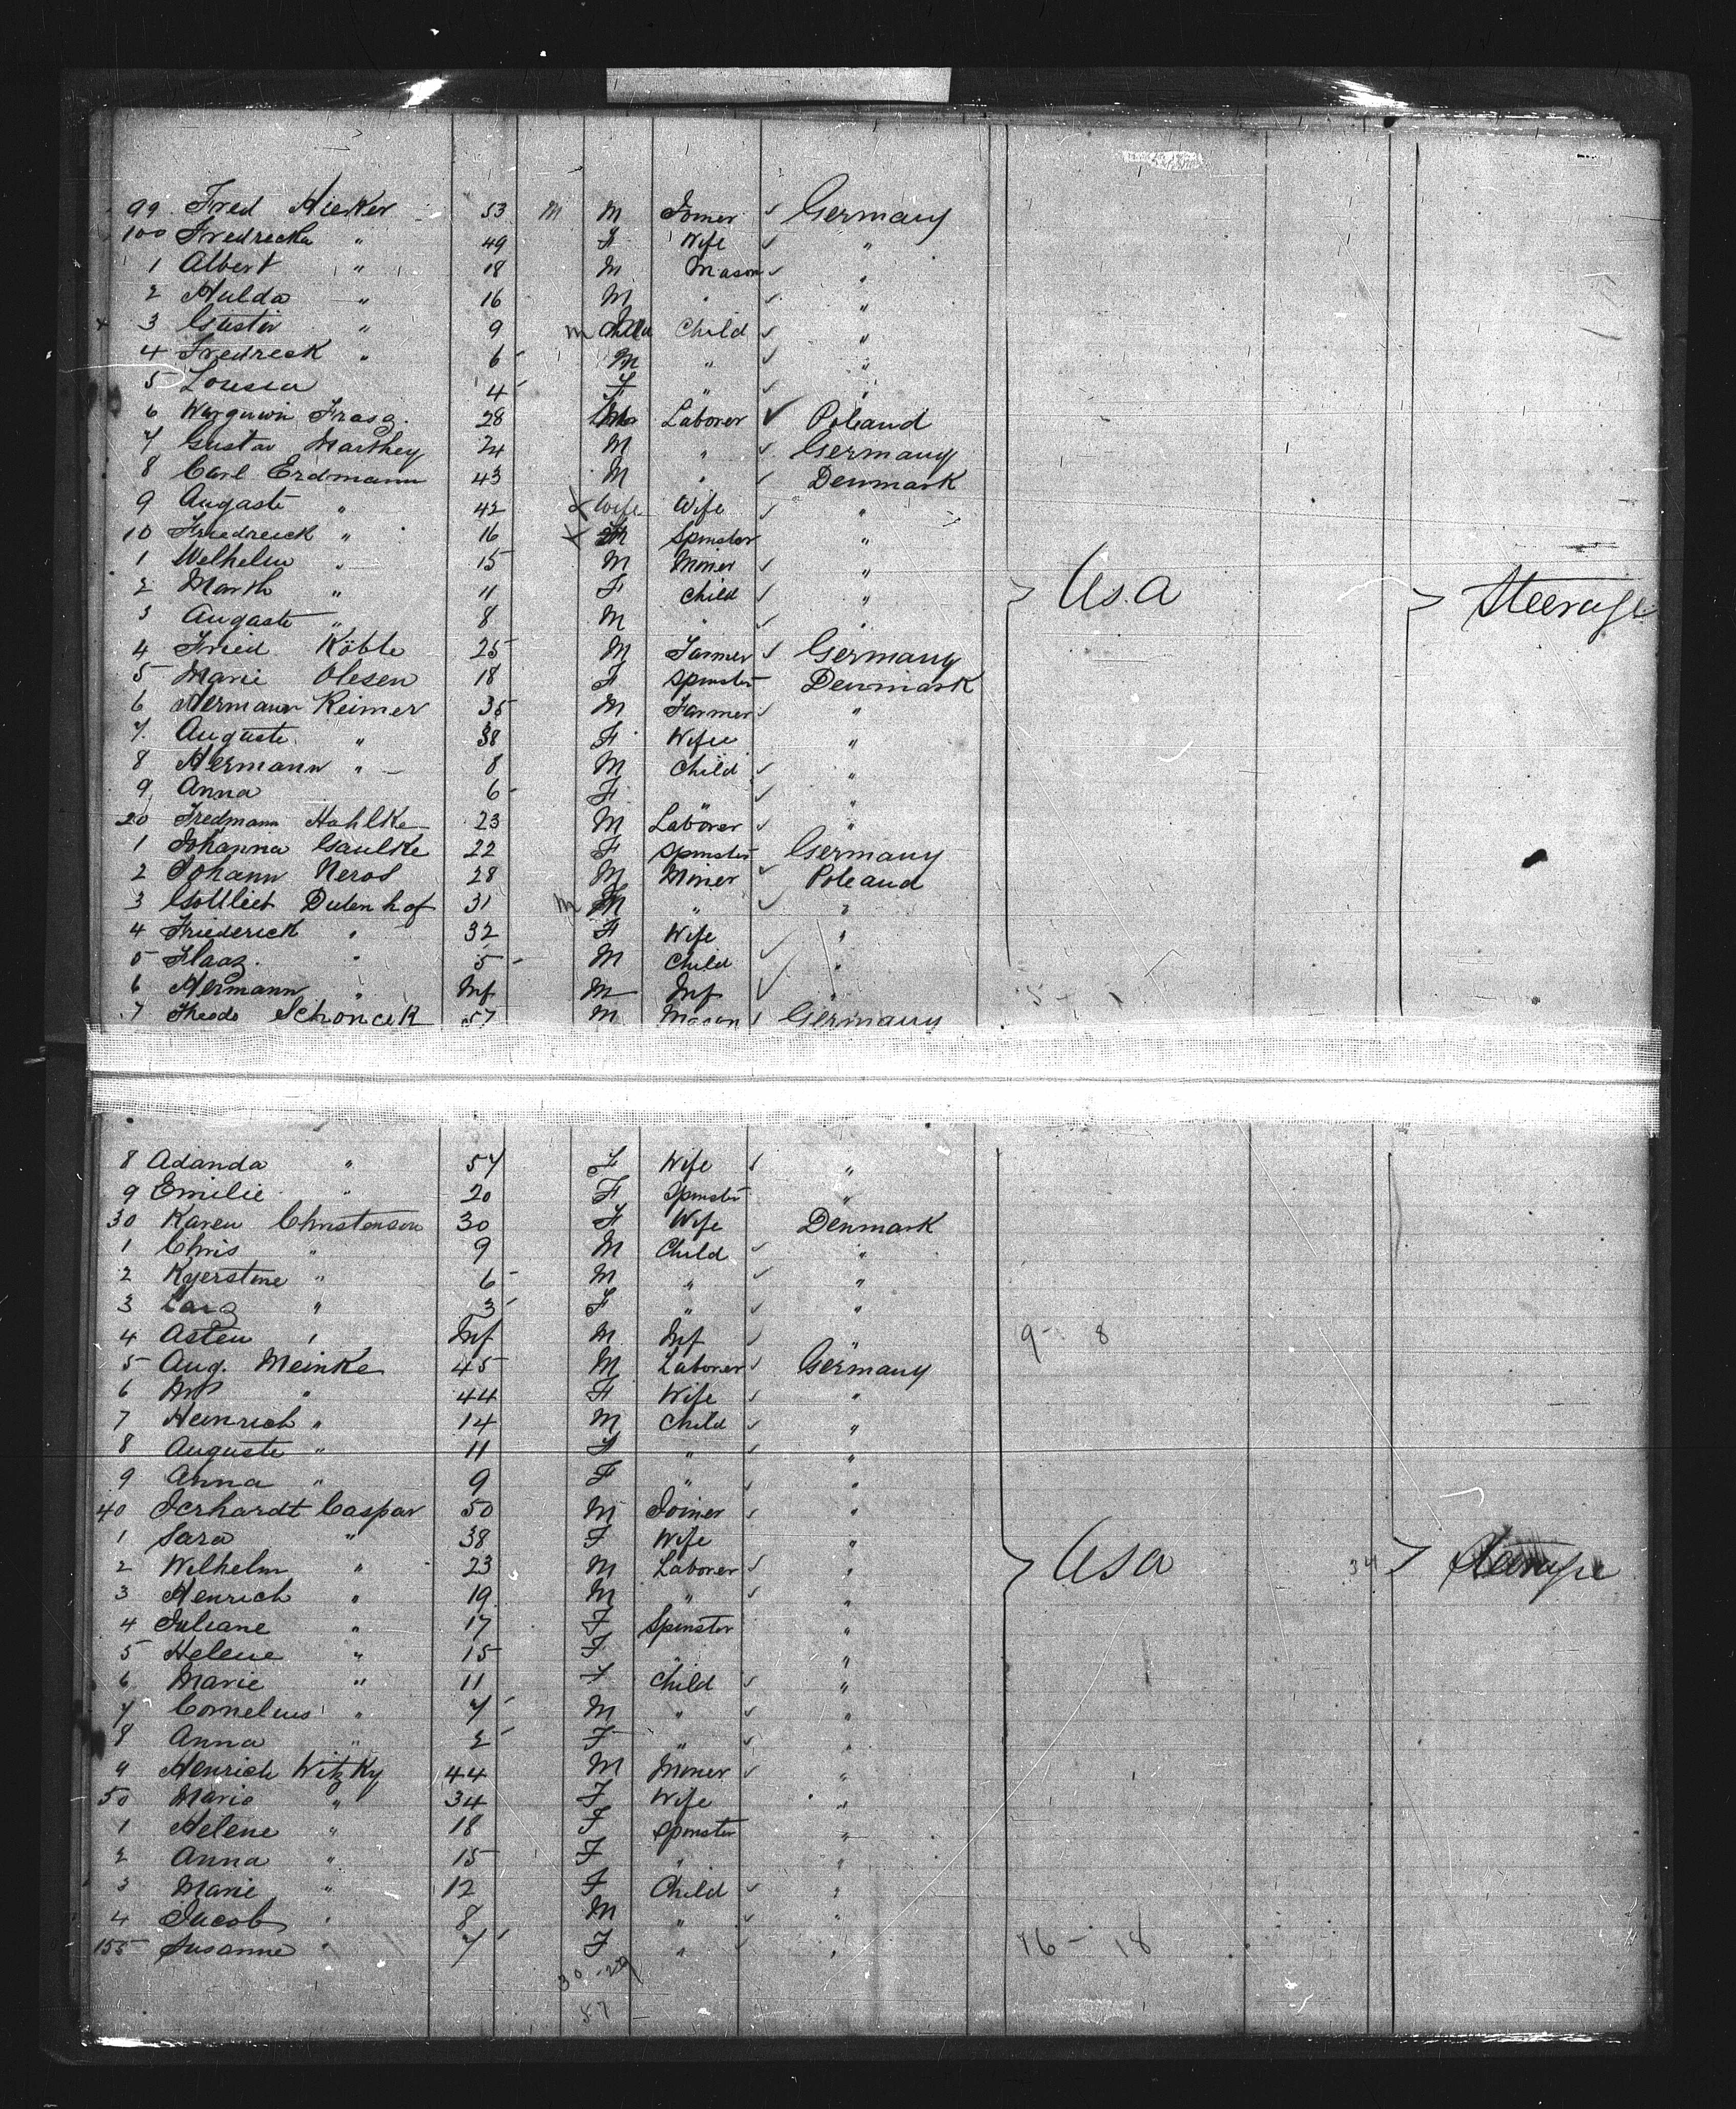 99 Fred Hierker 53 M M Joiner ✓ Germany
100 Fredrecka " 49 F Wife ✓ "
1 Albert " 18 M Mason ✓ "
2 Hulda " 16 M " ✓ "
3 Gustir " 9 m Child ✓ "
4 Fredreck " 6 M " ✓ "
5 Louesa 4 F " ✓ "
6 28 Laborer ✓ Poleand
7 Gustav Marthey 24 M " ✓ Germany
8 Carl Erdmann 43 M " ✓ Denmark
9 Augaste " 42 Wife Wife ✓ "
10 Friedreick " 16 Spinster "
1 Welhelm " 15 M Miner ✓ "
2 Marth " 11 F Child ✓ "
3 Augaste " 8 M " ✓ "
4 Fried Köble 25 M Farmer ✓ Germany
5 Marie Olesen 18 F Spinster Denmark
6 Hermann Reimer 35 M Farmer ✓ "
7 Auguste " 38 F Wife "
8 Hermann " 8 M Child ✓ "
9 Anna 6 F " ✓ "
20 Fredmann Hahlke 23 M Laborer ✓ "
1 Johanna Gaulke 22 F Spinster Germany
2 Johann Neros 28 M Miner ✓ Poleand
3 Gottlieb Dulenhof 31 m M " ✓ "
4 Friederick " 32 F Wife "
5 Flaaz " 5 M Child ✓ "
6 Hermann " Inf M Inf ✓ "
7 Theodo Schoncek 57 M Mason ✓ Germany
Usa Steerage
8 Adanda " 57 F Wife ✓ "
9 Emilie " 20 F Spinster "
30 Karen Christenson 30 F Wife Denmark
1 Chris " 9 M Child ✓ "
2 Kyerstine " 6 M " ✓ "
3 Larz " 3 F " ✓ "
4 Asten " Inf M Inf ✓ " 9 - 8
5 Aug. Meinke 45 M Laborer ✓ Germany
6 Mrs " 44 F Wife ✓ "
7 Heinrich " 14 M Child ✓ "
8 Auguste " 11 F " ✓ "
9 Anna " 9 F " ✓ "
40 Jerhardt Caspar 50 M Joiner ✓ "
1 Sara " 38 F Wife "
2 Wilhelm " 23 M Laborer ✓ "
3 Henrich " 19 M " ✓ "
4 Juliane " 17 F Spinster "
5 Helene " 15 F " "
6 Marie " 11 F Child ✓ "
7 Cornelius " 7 M " ✓ "
8 Anna " 2 F " ✓ "
9 Henrich Witzky 44 M Miner ✓ "
50 Marie " 34 F Wife "
1 Helene " 18 F Spinster "
2 Anna " 15 F " "
3 Marie " 12 F Child ✓ "
4 Jacob " 8 M " ✓ "
155 Susanne " 7 F " ✓ " 16 - 18
Usa 34 Steerage
30 - 29
57